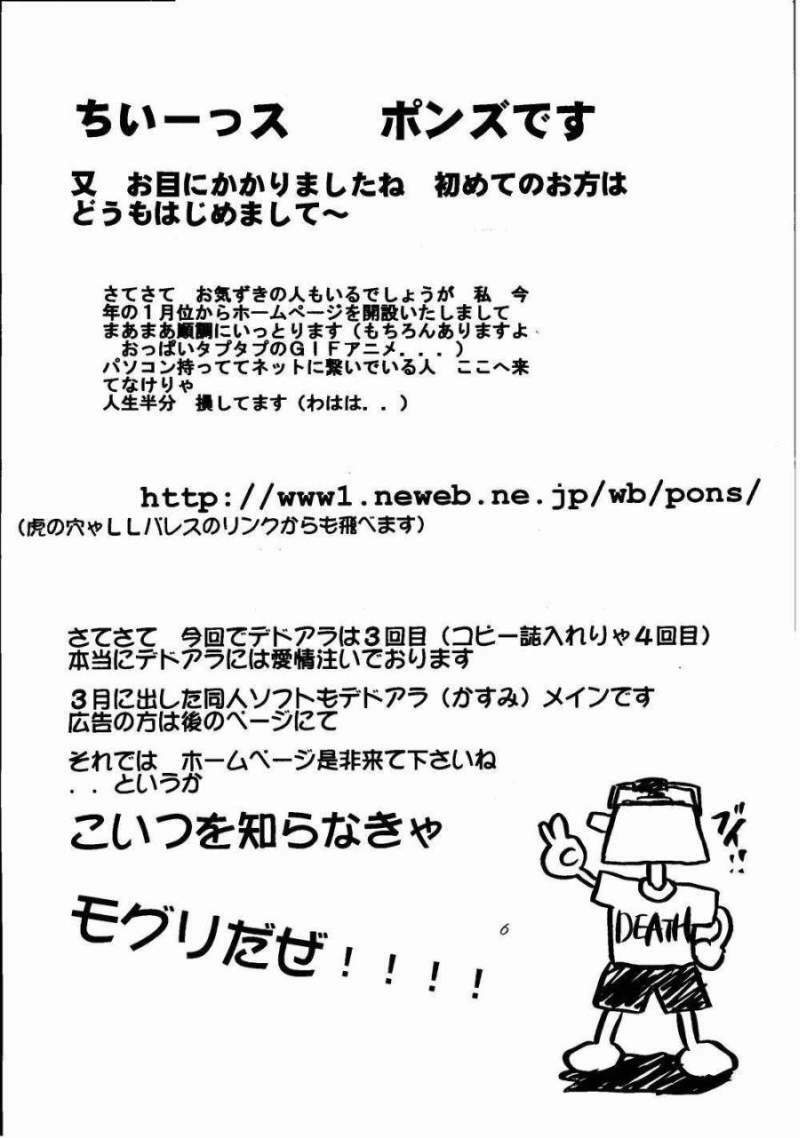 ちいーっス　　ポンズです
又　お目にかかりましたね　初めてのお方は
どうもはじめまして～
さてさて　お気ずきの人もいるでしょうが　私　今
年の１月位からホームページを開設いたしまして
まあまあ順調にいっとります（もちろんありますよ
おっぱいタプタプのＧＩＦアニメ．．．）
パソコン持っててネットに繋いでいる人　ここへ来
てなけりゃ
人生半分　損してます（わはは．．）
http://www1.neweb.ne.jp/wb/pons/
（虎の穴やＬＬパレスのリンクからも飛べます）
さてさて　今回でデドアラは３回目（コピー誌入れりゃ４回目）
本当にデドアラには愛情注いでおります
３月に出した同人ソフトもデドアラ（かすみ）メインです
広告の方は後のページにて
それでは　ホームページ是非来て下さいね
．．というか
こいつを知らなきゃ
モグリだぜ！！！！
ブイ!!
DEATH
6